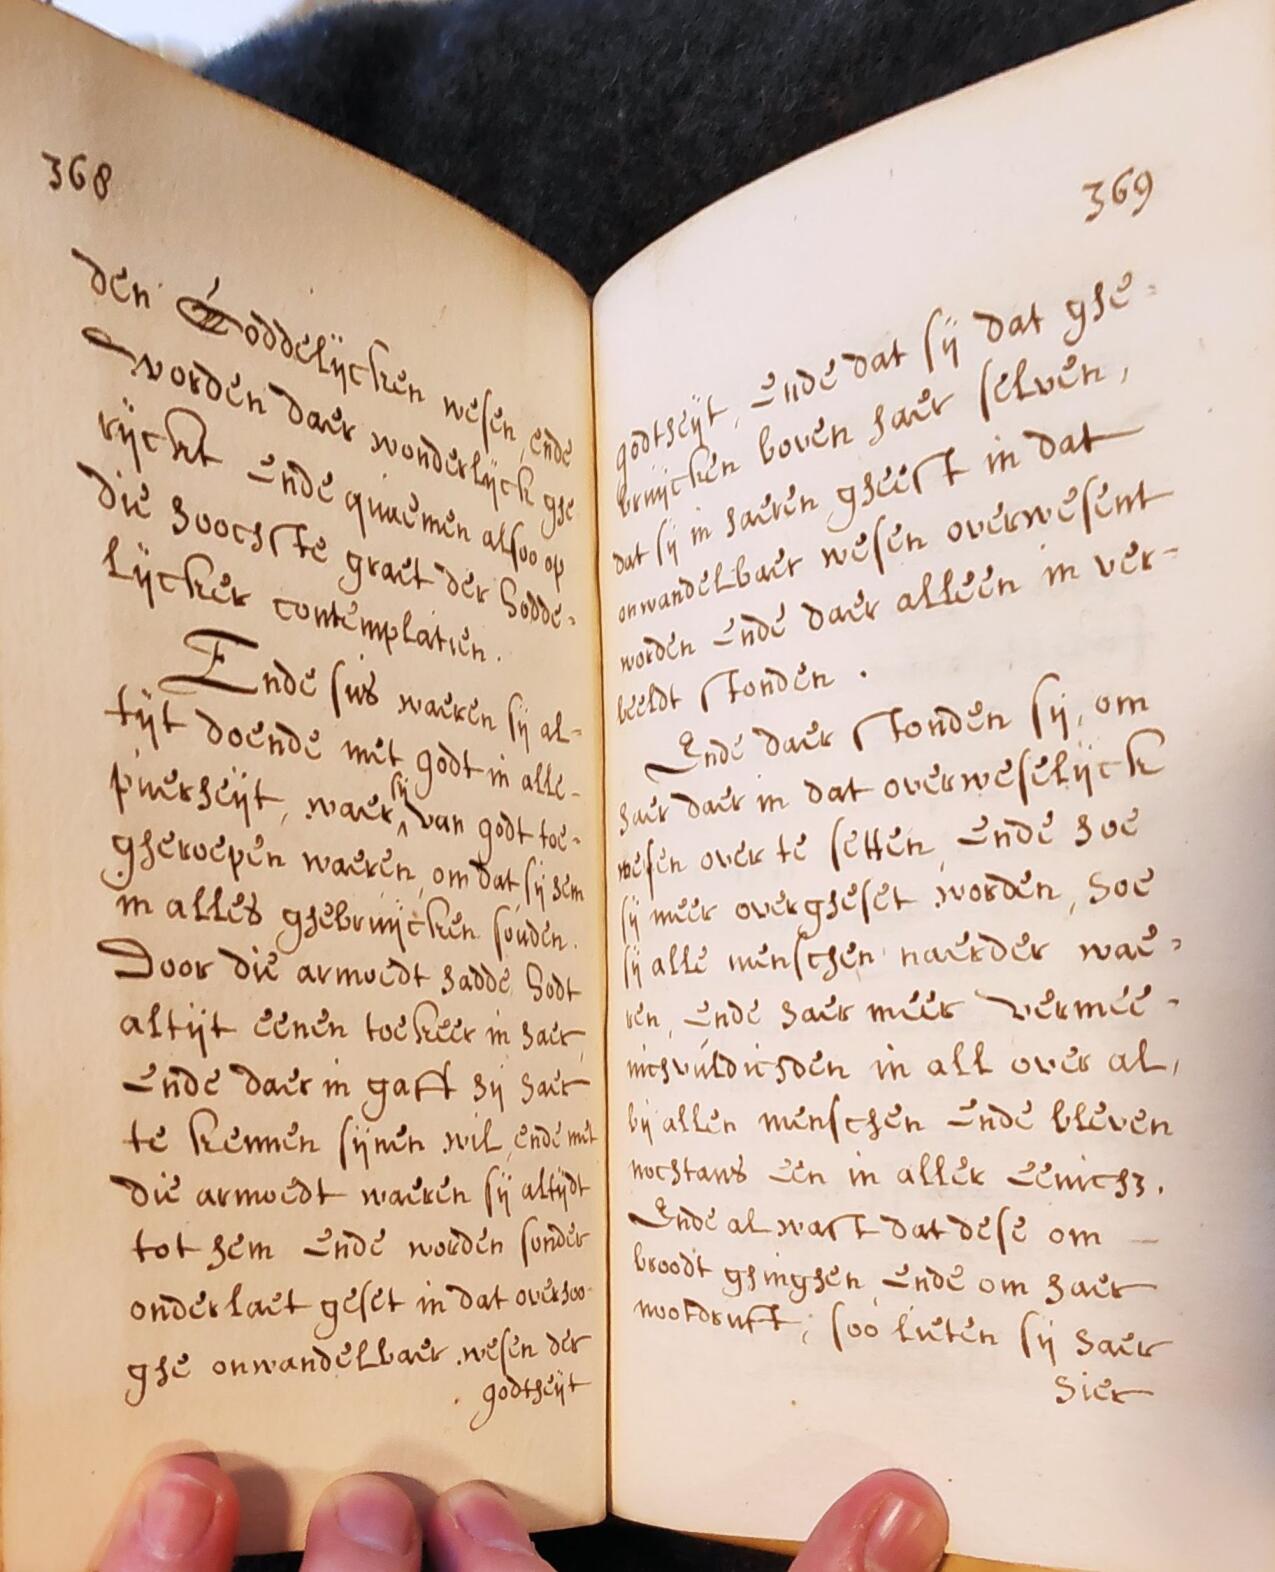 368
den Goddelijcken wesen, ende
worden daer wonderlijck ghe
rijckt ende quaemen alsoo op
die hoochste graet der Godde=
lijcker contemplatien.
Ende sus waeren sij al=
tijt doende met godt in alle-
puerheijt, waer sij van godt toe=
gheroepen waeren, om dat sij hem
in alles ghebruijcken souden.
Door die armoedt hadde Godt
altijt eenen toekeer in haer,
ende daer in gaff hij haer
te kennen sijnen wil, ende met
die armoedt waeren sij altijdt
tot hem ende worden sonder
onderlaet geset in dat overhoo-
ghe onwandelbaer wesen der
godtheijt
369
godtheijt, ende dat sij dat ghe=
bruijcken boven haer selven,
dat sij in haeren gheest in dat
onwandelbaer wesen overwesent
worden ende daer alleen in ver=
beeldt stonden.
Ende daer stonden sij, om
haer daer in dat overweselijck
wesen over te setten, ende hoe
sij meer overgheset worden, hoe
sij alle menschen naerder wae=
ren, ende haer meer vermee=
nichvúldichden in all over al,
bij allen menschen ende bleven
nochtans een in aller eenich3.
Ende al wast dat dese om
broodt ghinghen ende om haer
nootdruft, soo lieten sij haer
hier